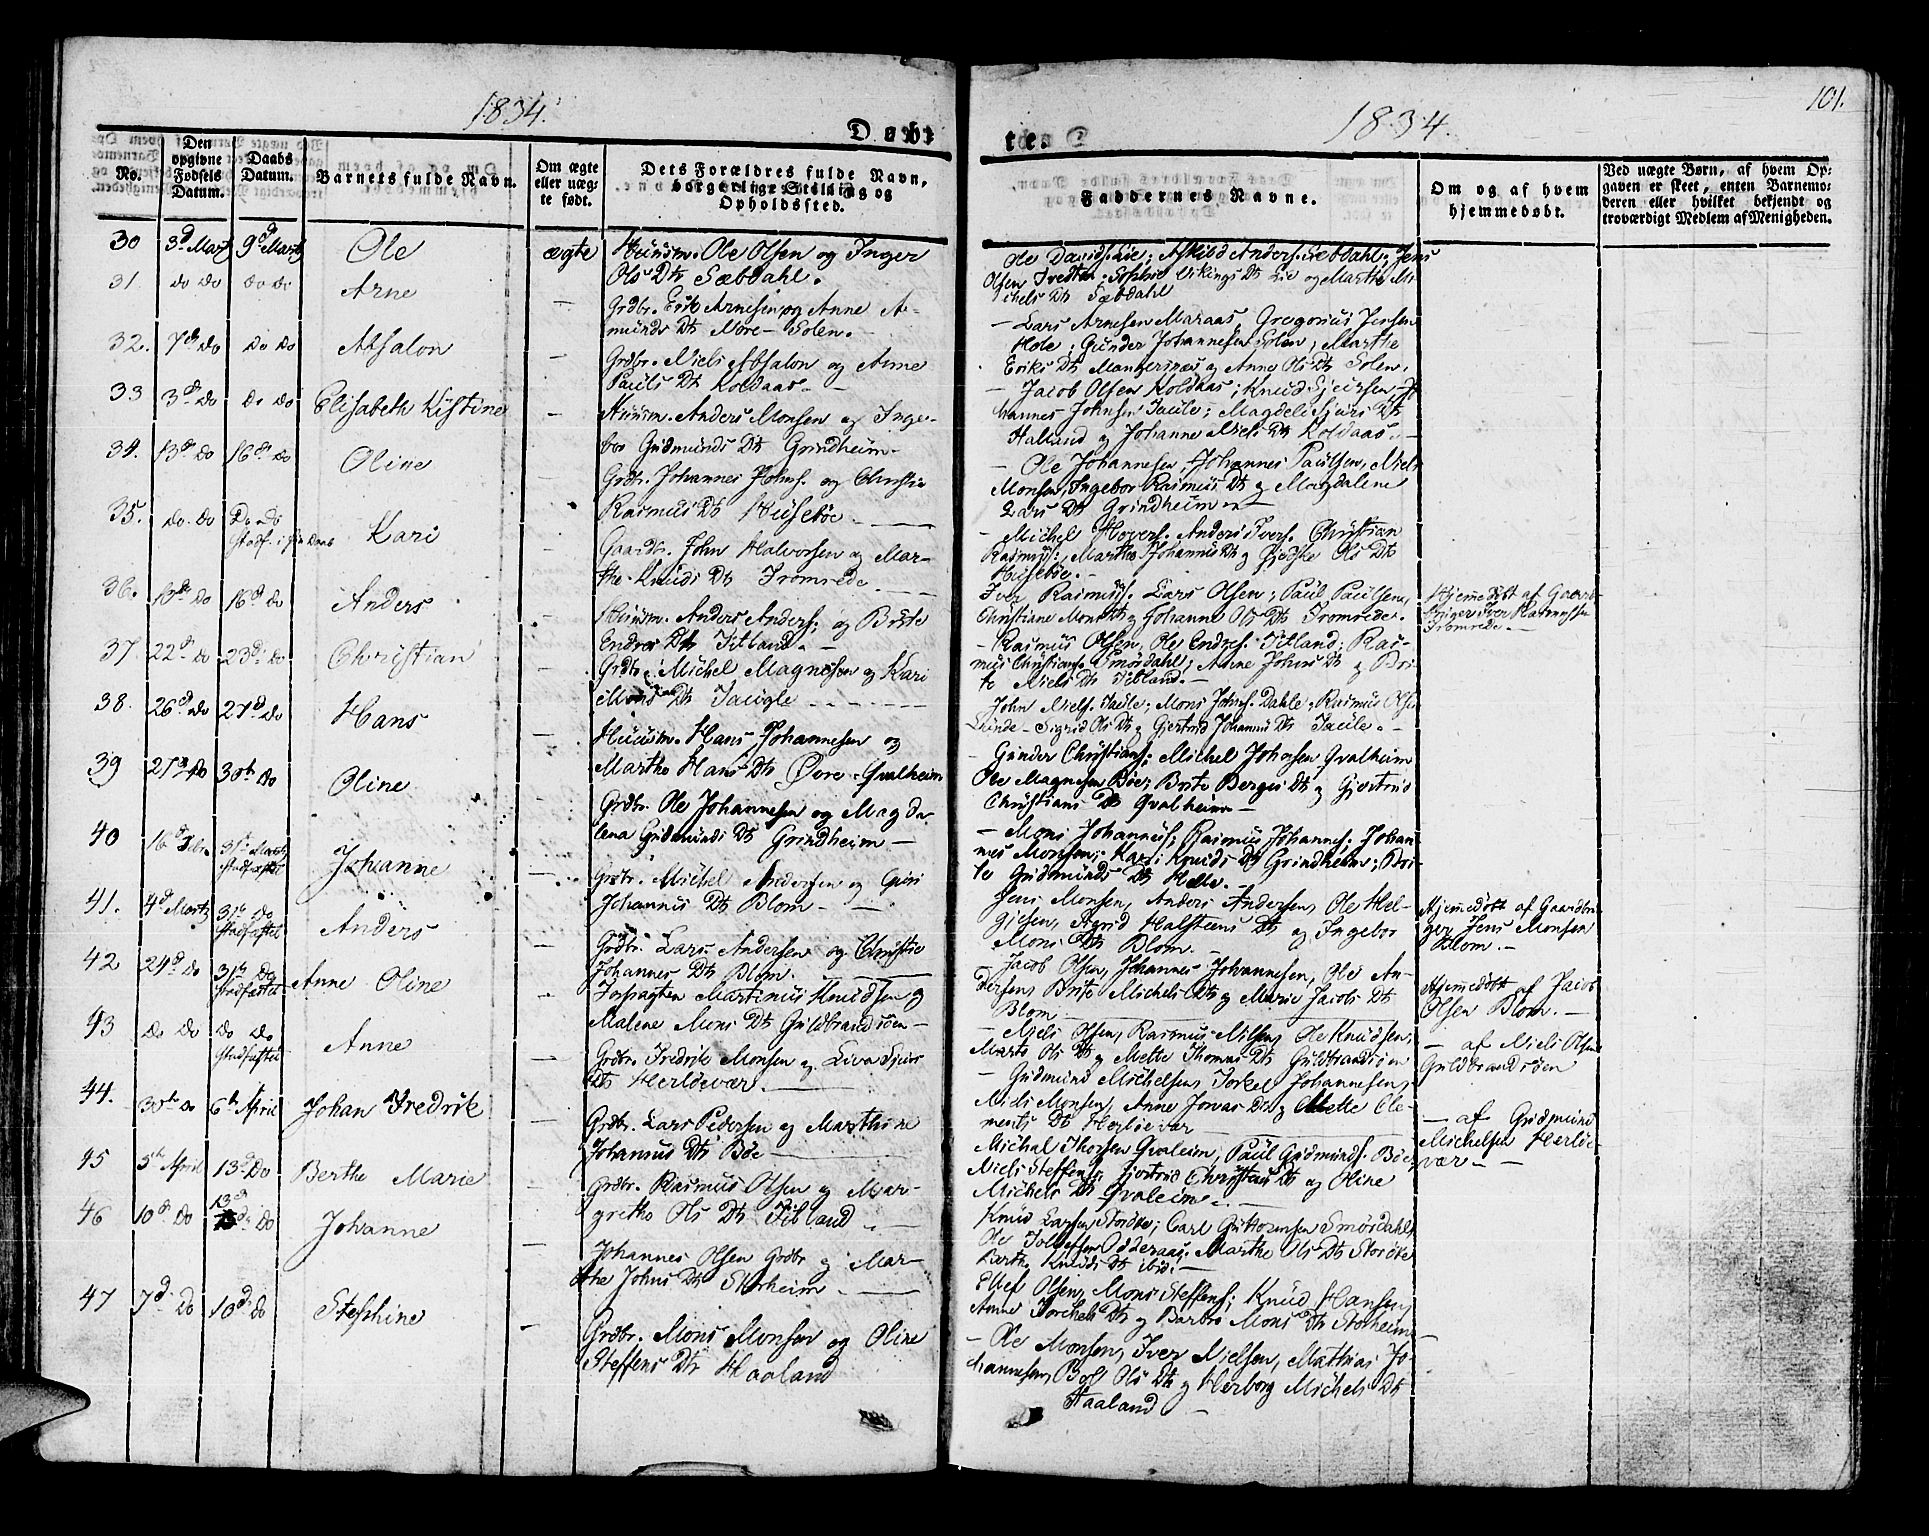 1834.
Døbte
1834.
101.
No.
Den opgivne Fødsels Datum.
Daabs Datum.
Barnets fulde Navn.
Om ægte eller uægte født.
Dets Forældres fulde Navn, borgerlige Stilling og Opholdssted.
Faddernes Navne.
Om og af hvem hjemmedøbt.
Ved uægte Børn, af hvem Opgaven er skeet, enten Barnemoderen eller hvilket bekjendt og troværdigt Medlem af Menigheden.
30 3d Martz 9d Martz Ole ægte Huusm. Ole Olsen og Inger
Ols Dtr Sæbdahl.
Ole Davids. Lie; Askild Anders. Sæbdahl; Jens
Olsen Tvedten; Sophie Vikings Dtr Lie og Marthe Mi-
chels Dtr Sæbdahl
31. do do do do Arne — Grdbr. Erik Arnesen og Anne A-
munds Dtr Nore-Solen. —
— Lars Arnesen Maraas, Gregorius Jensen
Hole; Gunder Johannesen Solen; Marthe
Eriks Dtr Mangersnæs og Anne Ols Dtr Solen.
32. 7d do do do Absalon — Grdbr. Niels Absalon og Anne
Pauls Dtr Koldaas. —
— Jacob Olsen Koldaas; Knud Sjursen, Jo-
hannes Johnsen Taule; Magdeli Sjurs Dtr
Halland og Johanne Niels Dtr Koldaas. —
33 3d do do do Elisabeth Kistine — Huusm. Anders Monsen og Inge-
bor Gudmunds Dtr Grindheim —
— Ole Johannesen, Johannes Paulsen, Niels
Monsen, Ingebor Rasmus Dtr og Magdalene
Lars Dtr Grindheim —
34. 13d do 16d do Oline — Grdbr. Johannes Johns. og Christie
Rasmus Dtr Husebøe —
— Michel Hovers. Anders Ivers. Christian
Rasmus., Marthe Johannes Dtr og Gjertrud Ols Dtr
Husebøe. —
35. do. do Do do
Stadf. i sin Daab Kari — Gaardbr. John Halvorsen og Mar-
the Knuds Dtr Tromrede —
Iver Rasmus. Lars Olsen; Paul Paulsen,
Christiane Mons Dtr og Johanne Ols Dtr Tromrede.
Hjemedøbt af Gaard-
Tromrede. —
36. 10de do 16d do Anders — Huusm. Anders Anders. og Brite
Endres Dtr Titland. —
— Rasmus Olsen, Ole Endres. Titland; Ras-
mus Christians. Smørdahl, Anne Johns Dtr og Bri-
te Niels Dtr Titland. —
37. 22d do 23d do Christian — Grdbr. Michel Magnesen og Kari
Mons Dtr Taugle —
John Niels. Taule; Mons Johns. Dahle; Rasmus Olsen
Lunde — Sigrid Ols Dtr og Gjertrud Johannes Dtr Taule. —
38. 26d do 27d do Hans — Huusm. Hans Johannesen og
Marthe Hans Dtr Øvre-Qvalheim
— Gunder Christians; Michel Johnsen Qvalheim
Ole Magnesen Bøe; Brite Berges Dtr og Gjertrud
Christians Dtr Qvalheim —
39 27d do 30te do Oline — Grdbr. Ole Johannesen og Magda-
lena Gudmunds Dtr Grindheim —
— Mons Johannes; Rasmus Johannes. Johan-
nes Monsen; Kari Knuds Dtr Grindheim; Bri-
te Gudmunds Dtr Helle. —
40 16d Febr. 31te Martz
Stadfæstet Johanne — Grdbr. Michel Andersen og Guri
Johannes Dtr Blom —
Jens Monsen, Anders Andersen, Ole Hel-
gesen, Sigrid Halsteens Dtr og Ingebor
Mons Dtr Blom. —
Hjemedøbt af Gaardbru-
ger Jens Monsen
Blom. —
41. 4d Martz 31te Do
Stadfæstet Anders — Grdbr. Lars Andersen og Christie
Johannes Dtr Blom. —
— Jacob Olsen, Johannes Johannesen, Ole An-
dersen, Brite Michels Dtr og Marie Jacobs Dtr
Blom —
Hjemedøbt af Jacob
Olsen Blom. —
42 24d do 31te Do
Stadfæstet Anne Oline — Martinus Knudsen og
Malene Mons Dtr Guldbrandsøen —
— Niels Olsen, Rasmus Nilsen, Ole Knudsen,
Marte Ols Dtr og Mette Thomas Dtr Guldbrandsøen
— af Niels Olsen
Guldbrandsøen
43 do do do do
Stadfæstet Anne — Grdbr. Fredrik Monsen og Liva Sjurs
Dtr Herldevær. —
— Gudmund Michelsen, Torkel Johannesen,
Niels Monsen, Anne Jonas Dtr og Mette Cle-
ments Dtr Herløevær
— af Gudmund
Michelsen Herløe-
vær —
44. 30te do 6te April Johan Fredrik — Grdbr. Lars Pedersen og Marthine
Johannes Dtr Bøe —
Michal Thorsen Qvaleim, Paul Gudmunds. Bøe,
Niels Steffens, Gjertrud Christians Dtr og Oline
Michels Dtr Qvaleim —
45 5te April 13d Do Berthe Marie — Grdbr. Rasmus Olsen og Mar-
grethe Ols Dtr Titland. —
Knud Larsen Storøke; Carl Guttormsen Smørdahl,
Ole Tollefsen Odderaas. Marthe Ols Dtr Storøke
Barthe Knuds Dtr ibid. —
46 10d do 13d do Johanne — Johannes Olsen Grdbr og Mar-
the Johns Dtr Storheim —
Ellef Olsen, Mons Steffens; Knud Hansen,
Anne Torchels Dtr og Barbro Mons Dtr Storheim
47 7d do 10d do Stephine — Grdbr. Mons Monsen og Oline
Steffens Dtr Haaland
— Ole Monsen, Iver Nielsen, Mathias Jo-
hannesen, Ols Dtr og Herborg Michels Dtr
Haaland —